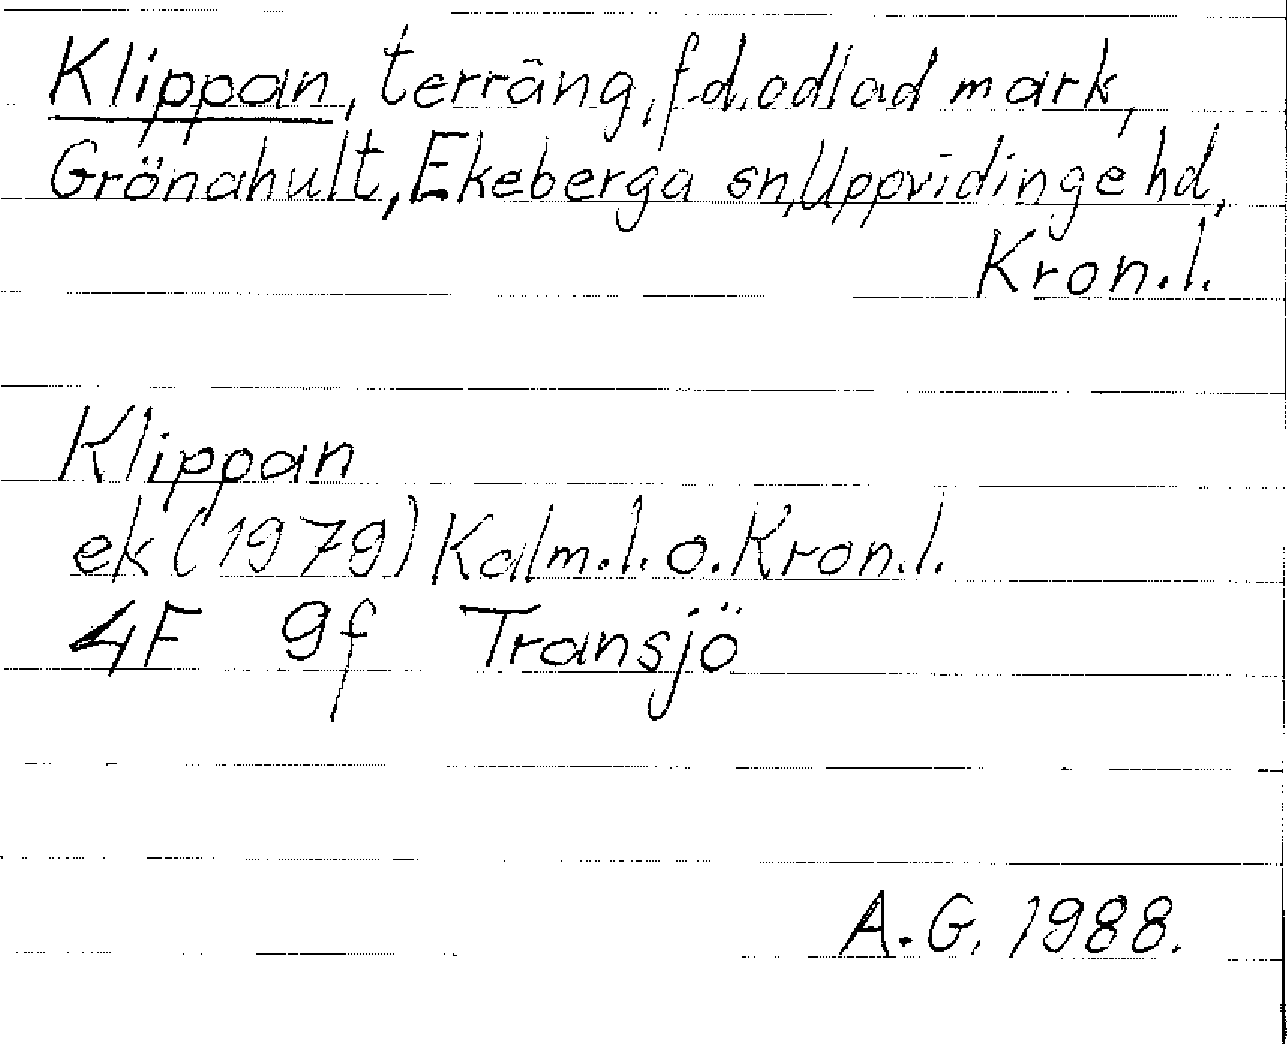 Klippan, terräng, f.d. odlad mark,
Grönahult, Ekeberga sn, Uppvidinge hd,
Kron.l.
Klippan
ek (1979) Kalm.l. o. Kron.l.
4F 9f Transjö
A.G. 1988.